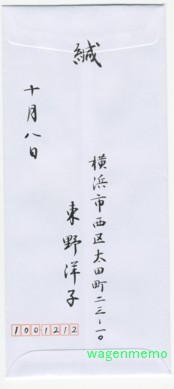 緘
十月八日
横浜市西区太田町二三-一〇
東野洋子
1001212
wagenmemo